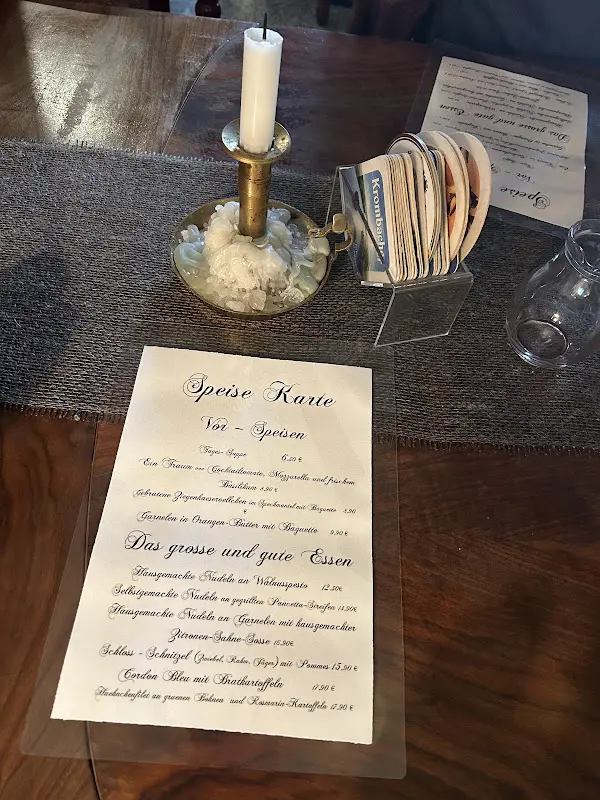 Krombache
Das grosse und gute Essen
Vor
Speise
Speise Karte
Vor - Speisen
Tages-Suppe 6,50 €
Ein Traum von Cocktailtomate, Mozzarella und frischem
Basilikum 8,90 €
Gebratene Ziegenkaeseroellchen im Speckmantel mit Baguette 8,90
€
Garnelen in Orangen-Butter mit Baguette 9,90 €
Das grosse und gute Essen
Hausgemachte Nudeln an Walnusspesto 12,50€
Selbstgemachte Nudeln an gegrillten Pancetta-Streifen 14,90€
Hausgemachte Nudeln an Garnelen mit hausgemachter
Zitronen-Sahne-Sosse 16,90€
Schloss - Schnitzel (Zwiebel, Rahm, Jäger) mit Pommes 15,90 €
Cordon Bleu mit Bratkartoffeln 17,90 €
Huehnchenfilet an gruenen Bohnen und Rosmarin-Kartoffeln 17,90 €